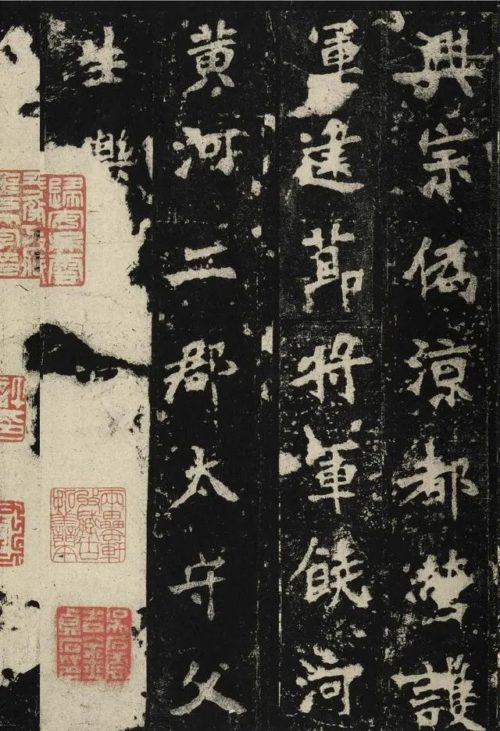 興宗偽涼都營護
軍建節將軍饒河
黃河二郡太守父
生樂